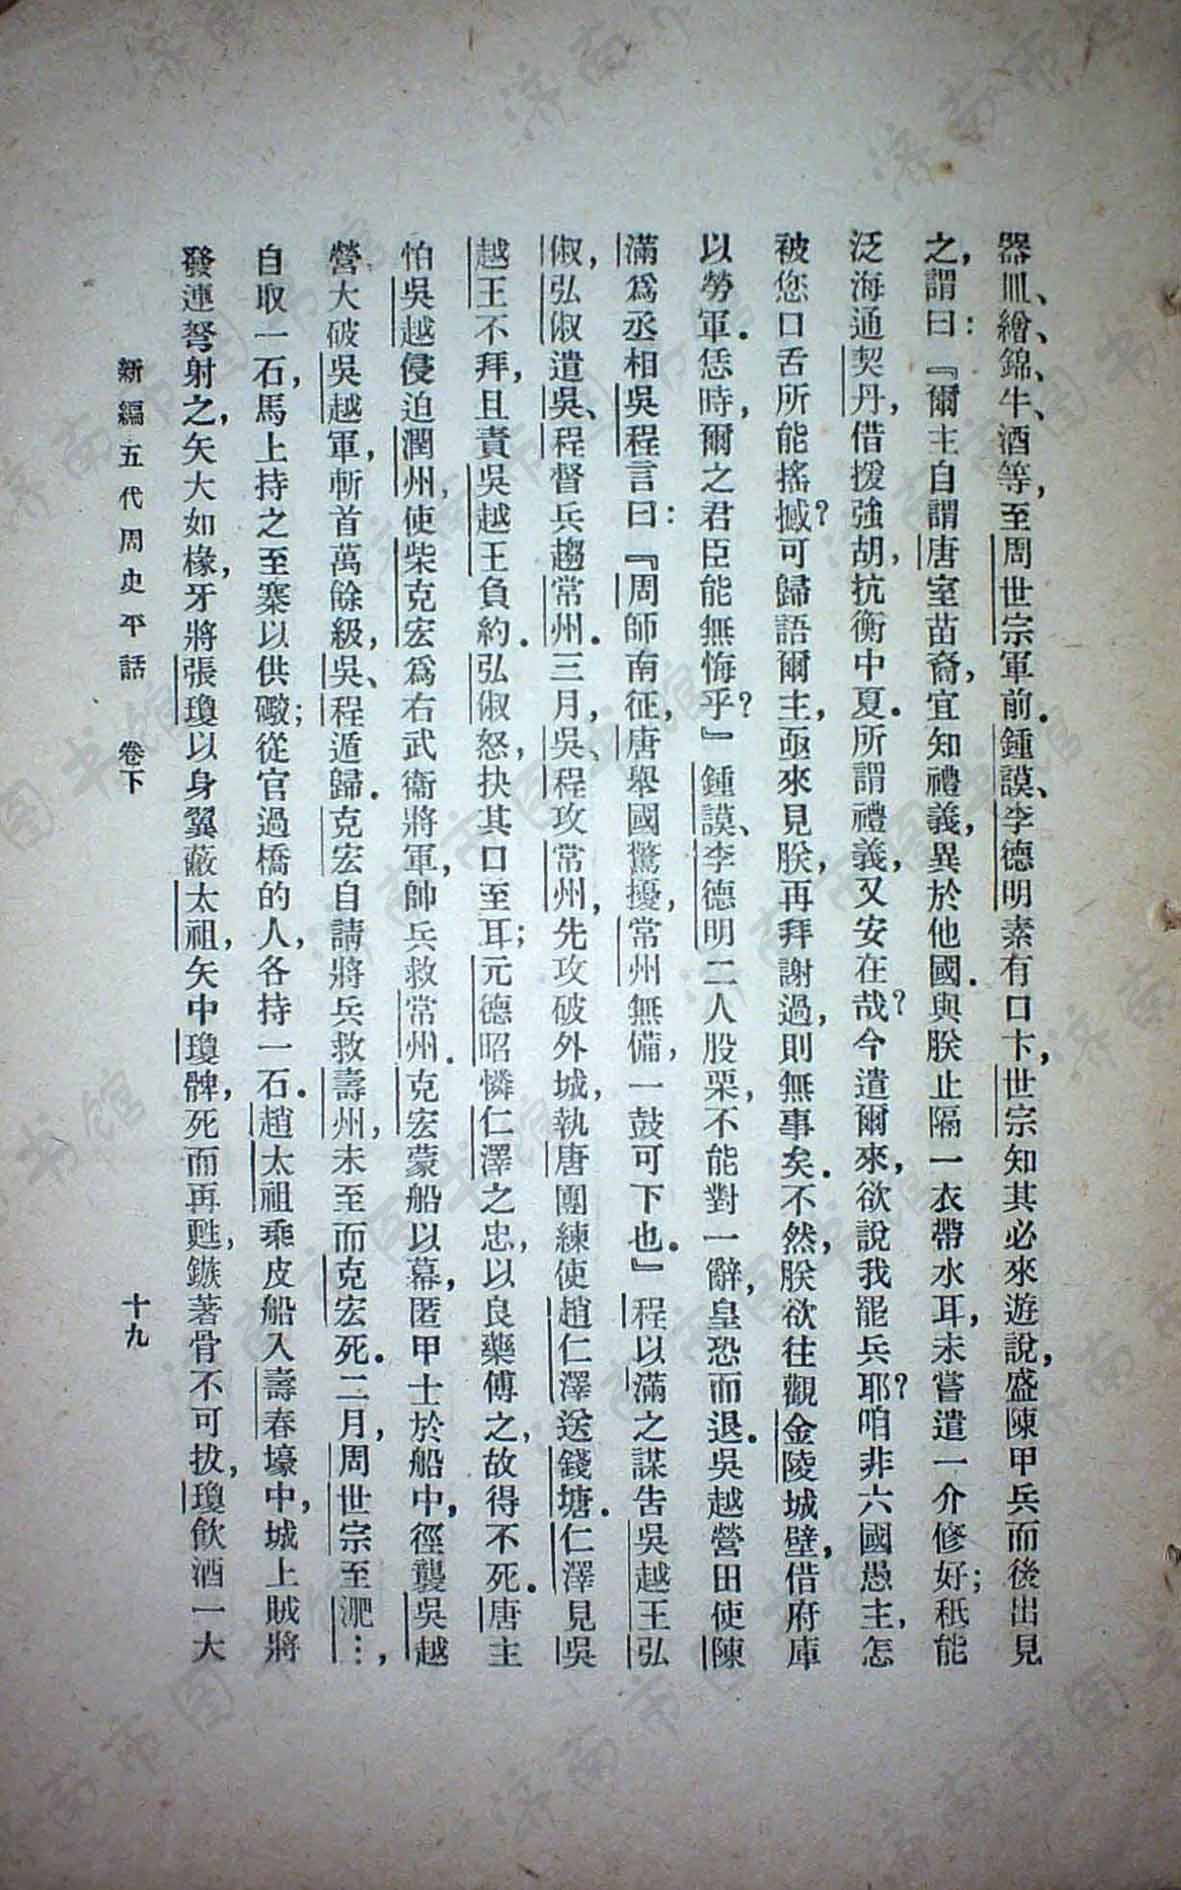 器皿、繒、錦、牛、酒等，至周世宗軍前．鍾謨、李德明素有口卞，世宗知其必來遊說，盛陳甲兵而後出見
之，謂曰：『爾主自謂唐室苗裔，宜知禮義，異於他國．與朕止隔一衣帶水耳，未嘗遣一介修好；秖能
泛海通契丹，借援強胡，抗衡中夏．所謂禮義，又安在哉？今遣爾來，欲說我罷兵耶？咱非六國愚主，怎
被您口舌所能搖撼？可歸語爾主，亟來見朕，再拜謝過，則無事矣．不然，朕欲往觀金陵城壁，借府庫
以勞軍．恁時，爾之君臣能無悔乎？』鍾謨、李德明二人股栗，不能對一辭，皇恐而退．吳越營田使陳
滿爲丞相吳程言曰：『周師南征，唐舉國驚擾，常州無備，一鼓可下也．』程以滿之謀告吳越王弘
俶，弘俶遣吳、程督兵趨常州．三月，吳、程攻常州，先攻破外城，執唐團練使趙仁澤送錢塘．仁澤見吳
越王不拜，且責吳越王負約．弘俶怒，抉其口至耳；元德昭憐仁澤之忠，以良藥傅之，故得不死．唐主
怕吳越侵迫潤州，使柴克宏爲右武衞將軍，帥兵救常州．克宏蒙船以幕，匿甲士於船中，徑襲吳越
營大破吳越軍，斬首萬餘級，吳、程遁歸．克宏自請將兵救壽州，未至而克宏死．二月，周世宗至淝…，
自取一石，馬上持之至寨以供礮；從官過橋的人，各持一石．趙太祖乘皮船入壽春壕中，城上賊將
發連弩射之，矢大如椽，牙將張瓊以身翼蔽太祖，矢中瓊髀，死而再甦，鏃著骨不可拔，瓊飲酒一大
新編五代周史平話 卷下 十九
济南市图书馆